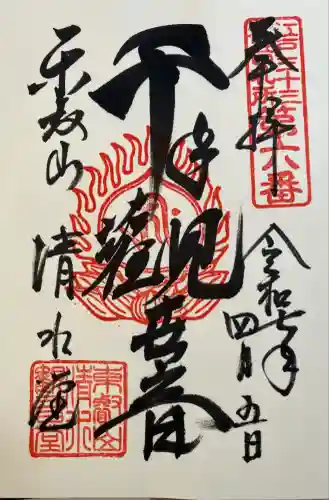 奉拝
江戸三十三箇所第六番
令和七年
四月五日
千手観世音
東叡山
清水堂
東叡山
清水
観音堂